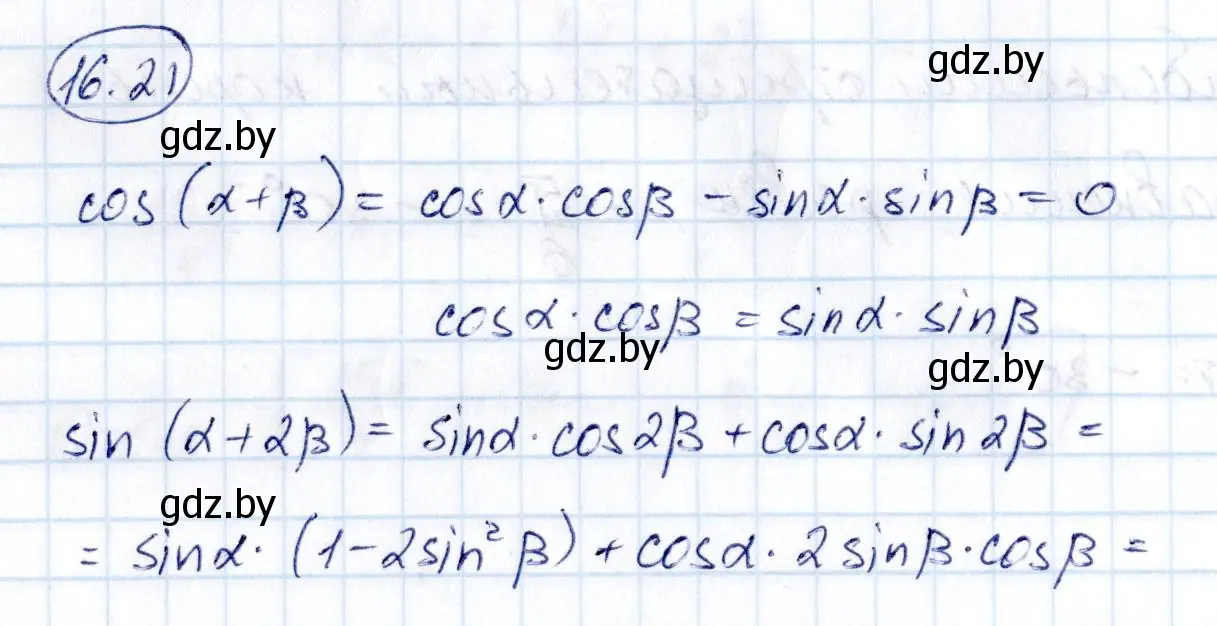 16.21
gdz.by
gdz.by
cos(α+β) = cosα·cosβ - sinα·sinβ = 0
cosα·cosβ = sinα·sinβ
gdz.by
gdz.by
sin(α+2β) = sinα·cos2β + cosα·sin2β =
gdz.by
= sinα·(1-2sin²β) + cosα·2sinβ·cosβ =